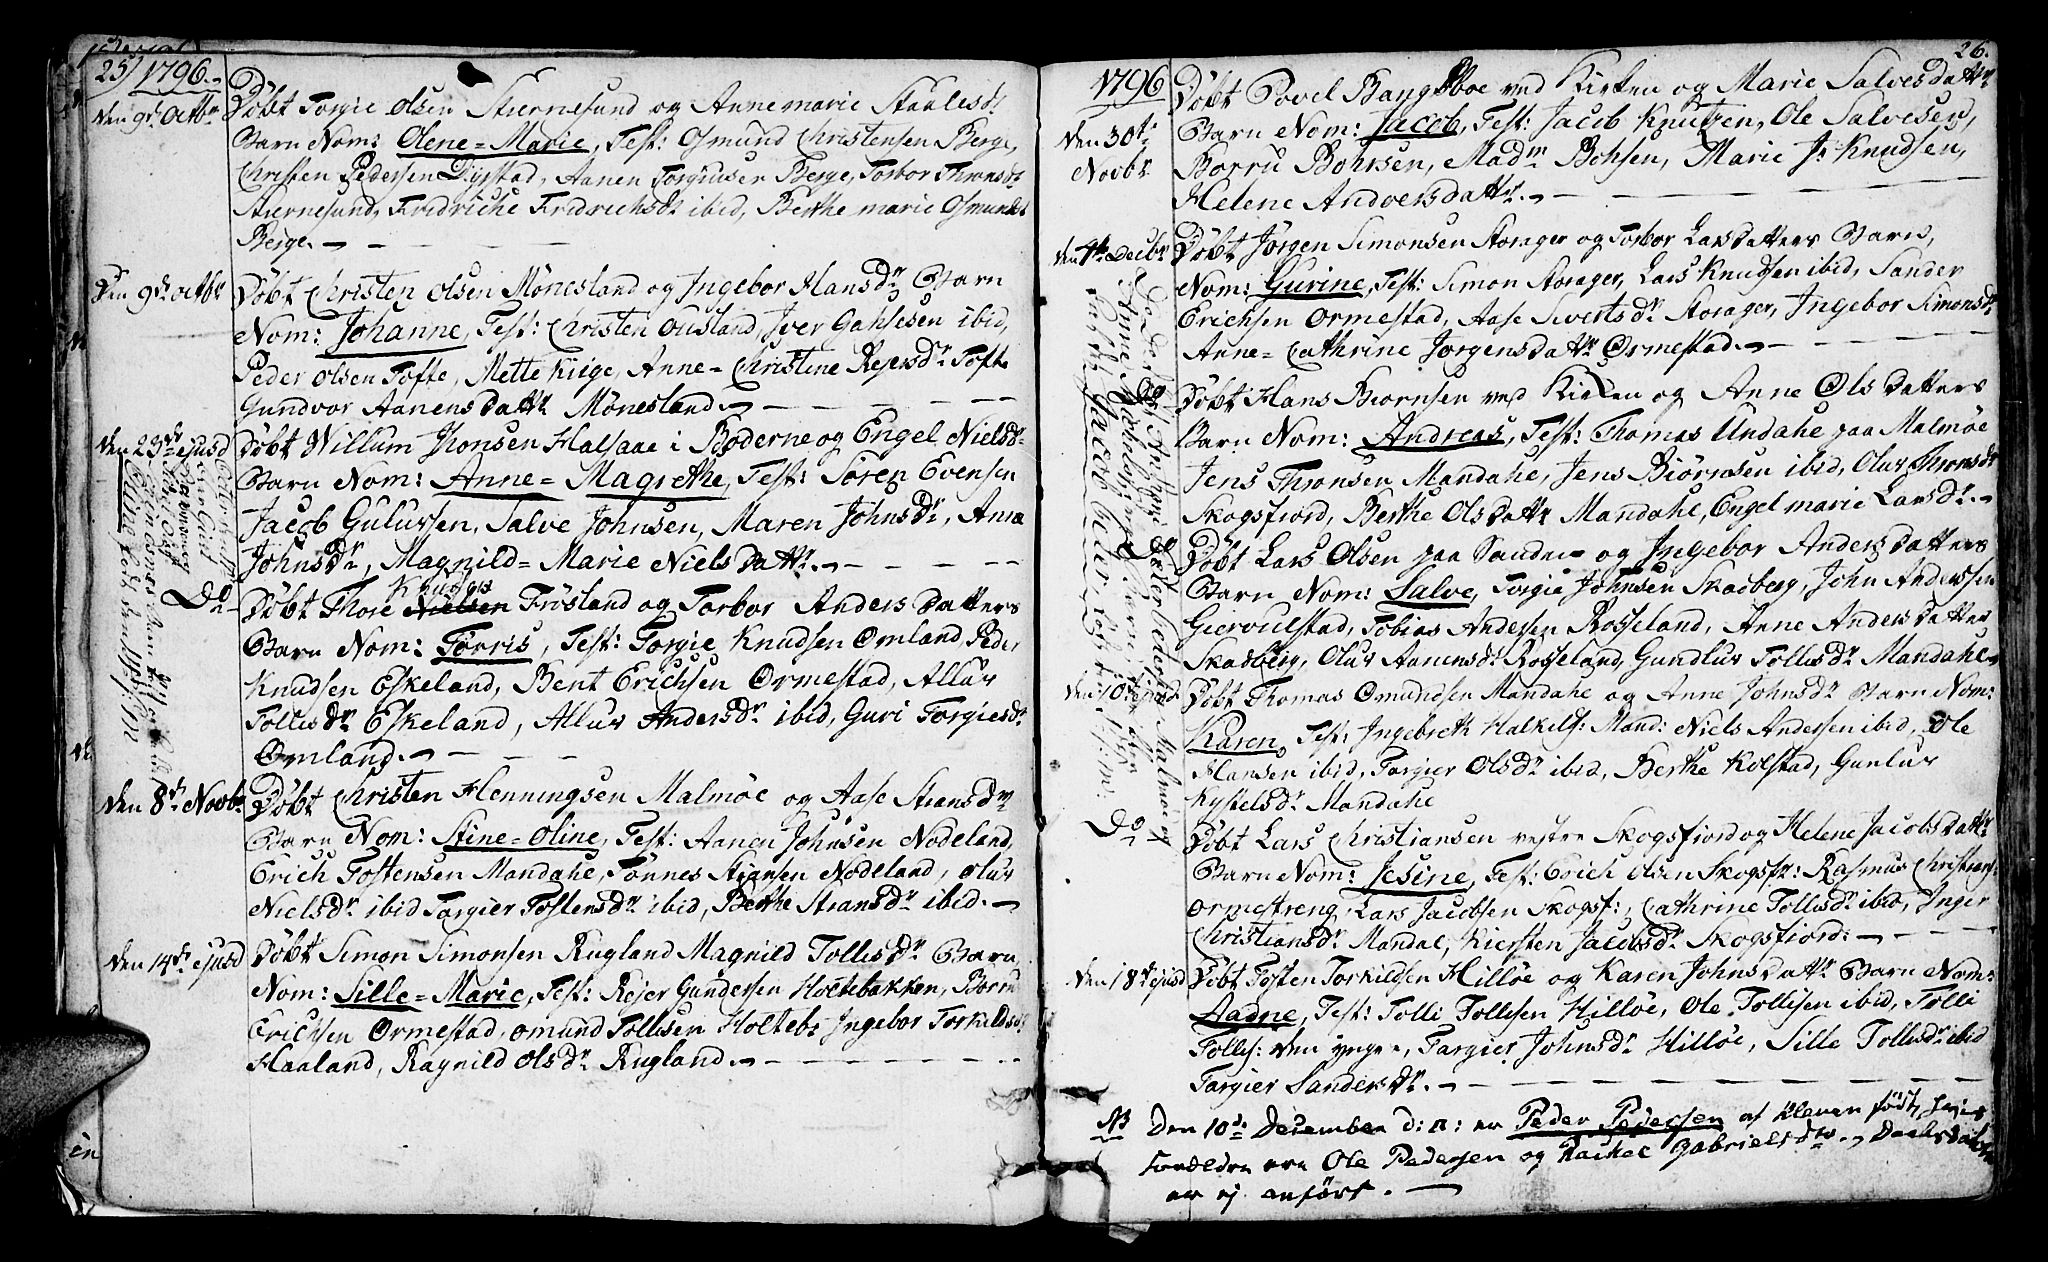 25) 1796.
den 9de Octbr Döbt Torgie Olsen Stiernesund og Anne marie Staalesdr
Barn Nom: Olene=Marie, Test: Osmund Christensen Berge,
Christen Pedersen Dyrstad, Aanen Torgiusen Berge, Torbor Thronsdr
Stiernesund, Fridriche Fridrichsdr ibid, Berthe marie Osmundsdr
Berge.
Den 9de octbr Döbt Christen Olsen Mönesland og Ingebor Hansdr Barn
Nom: Johanne, Test: Christen Ousland, Iver Gahsesen ibid,
Peder Olsen Tofte, Mette Kiige, Anne=Christine Rejersdr Tofte
Gundvor Aanensdattr Mönesland.
den 23de ejusd Döbt Willum Jhonsen Halsaae i Boderne og Engel Nielsdr
Barn Nom: Anne=Magrethe, Test: Sören Evensen
Jacob Gulursen, Salve Johnsen, Maren Johnsdr, Anne
Johnsdr, Magnild=Marie Nielsdattr.
Knudsen
Do Döbt Thore Nielsen Frösland og Torbor Andersdatters
Barn Nom: Torris, Test: Torgie Knudsen Omland, Peder
Knudsen Eskeland, Bent Erichsen Ormestad, Allur
Tollisdr Eskeland, Allur Andersdr ibid, Guri Torgiesdr
Omland.
den 8de Novbr Döbt Christen Henningsen Malmöe og Aase Stiansdr
Barn Nom: Stine=Oline, Test: Aanen Johnsen Nodeland,
Erich Tostensen Mandahl, Tönnes Stiansen Nodeland, Olur
Nielsdr ibid Targier Tostensdr ibid, Berthe Stiansdr ibid.
den 14de ejusd Döbt Simon Simonsen Rugland Magnild Tollisdr Barn
Nom: Sille=Marie, Test: Rejer Gundersen Holtebakken, Borru
Erichsen Ormestad, Omund Tollisen Holteb: Ingebor Torkildsdr
Haaland, Ragnild Olsdr Rugland.
26.
1796 Döbt Povel Bang Boe ved Kirken og Marie Salvesdattr
den 30te Barn Nom: Jacob, Test: Jacob Knutzen, Ole Salvesen,
Novbr Borru Bohrsen, Madm Bohsen, Marie Jr Knudsen,
Helene Andversdattr.
den 4de Decbr Döbt Jörgen Simonsen Storager og Torbor Larsdatters Barn,
Nom: Gurine, Test: Simon Storager, Lars Knudsen ibid, Sander
Erichsen Ormestad, Aase Sivertsdr Storager, Ingebor Simonsdr
Anne=Cathrine Jorgensdattr Ormestad.
Do Döbt Hans Biornsen ved Kirken og Anne Olsdatters
Barn Nom: Andreas, Test: Thomas Undahl paa Malmöe
Jens Thronsen Mandahl, Jens Biörnsen ibid, Olur Thronsdr
Skogsfiord, Berthe Olsdattr Mandahl, Engel marie Larsdr.
Döbt Lars Olsen paa Sanden og Ingebor Andersdatters
Barn Nom: Salve, Torgie Johnsen Skadberg, John Anderssen
Giervulstad, Tobias Andersen Rosseland, Anne Andersdatter
Skadberg, Olur Aanensdr Rosseland, Gundlur Tollisdr Mandahl
den 10de ejusd Döbt Thomas Omundsen Mandahl og Anne Johnsdr Barn Nom:
Karen, Test: Ingebreth Halkils: Mand: Niels Andersen ibid, Ole
Hansen ibid, Targier Olsdr ibid, Berthe Kolstad, Gunlur
Kystelsdr Mandahl
Do Döbt Lars Christiansen vestre Skogsfiord og Helene Jacobsdattr
Barn Nom: Jesine, Test: Erich Olsen Skogsf: Rasmus Christians:
Ormestreng, Lars Jacobsen Skogsf:, Cathrine Tollisdr ibid, Inger
Christiansdr Mandal, Kiersten Jacobsdr Skogsfiord:
den 18de ejusd Döbt Tosten Torkildsen Hilloe og Karen Johnsdattr Barn Nom:
Aadne, Test: Tolli Tollisen Hillöe, Ole Tollisen ibid, Tolli
Tollis: den yngre, Targier Johnsdr Hillöe, Sille Tollisdr ibid
Targier Sandersdr.
NB Den 10de December d: a: er Peder Pedersen af Kleven född, hans
Forældre ere Ole Pedersen og Rachel Gabrielsdr, Daabsdatum
er ej anfört.